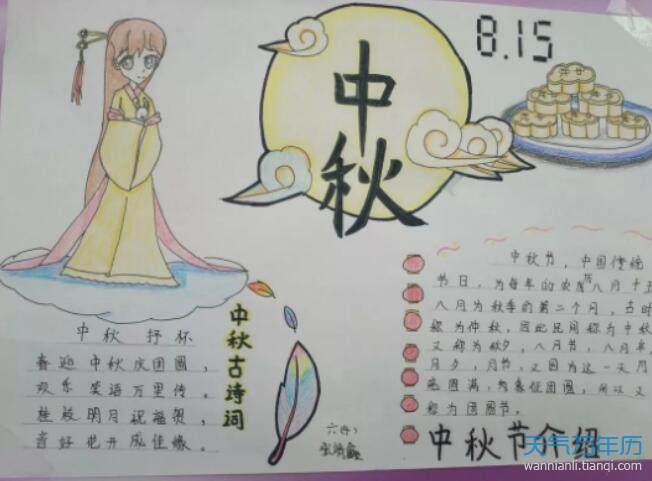 中秋
8.15
中秋 抒怀
喜迎中秋庆团圆,
欢乐笑语万里传。
桂殿明月祝福贺,
花好花开成佳缘。
中秋古诗词
中秋节,中国传统
节日,为每年的农历八月十五
八月为秋季的第二个月,古时
称为仲秋,因此民间称为中秋
又称为秋夕,八月节,八月半,
月夕,月节,又因为这一天月
亮圆满,象征团圆,所以又
称为团圆节。
中秋节介绍
天气万年历
wannianli.tianqi.com